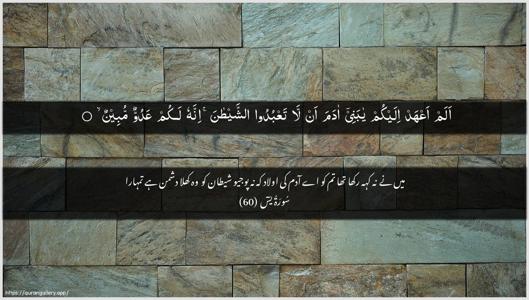 اَلَمْ اَعْهَدْ اِلَيْكُمْ يٰبَنِيْٓ اٰدَمَ اَنْ لَّا تَعْبُدُوا الشَّيْطٰنَ ۚ اِنَّهٗ لَكُمْ عَدُوٌّ مُّبِيْنٌ ۙ ○
میں نے نہ کہہ رکھا تھا تم کو اے آدم کی اولاد کہ نہ پوجیو شیطان کو وہ کھلا دشمن ہے تمہارا
سُورۃ یٰس (60)
https://qurangallery.app/